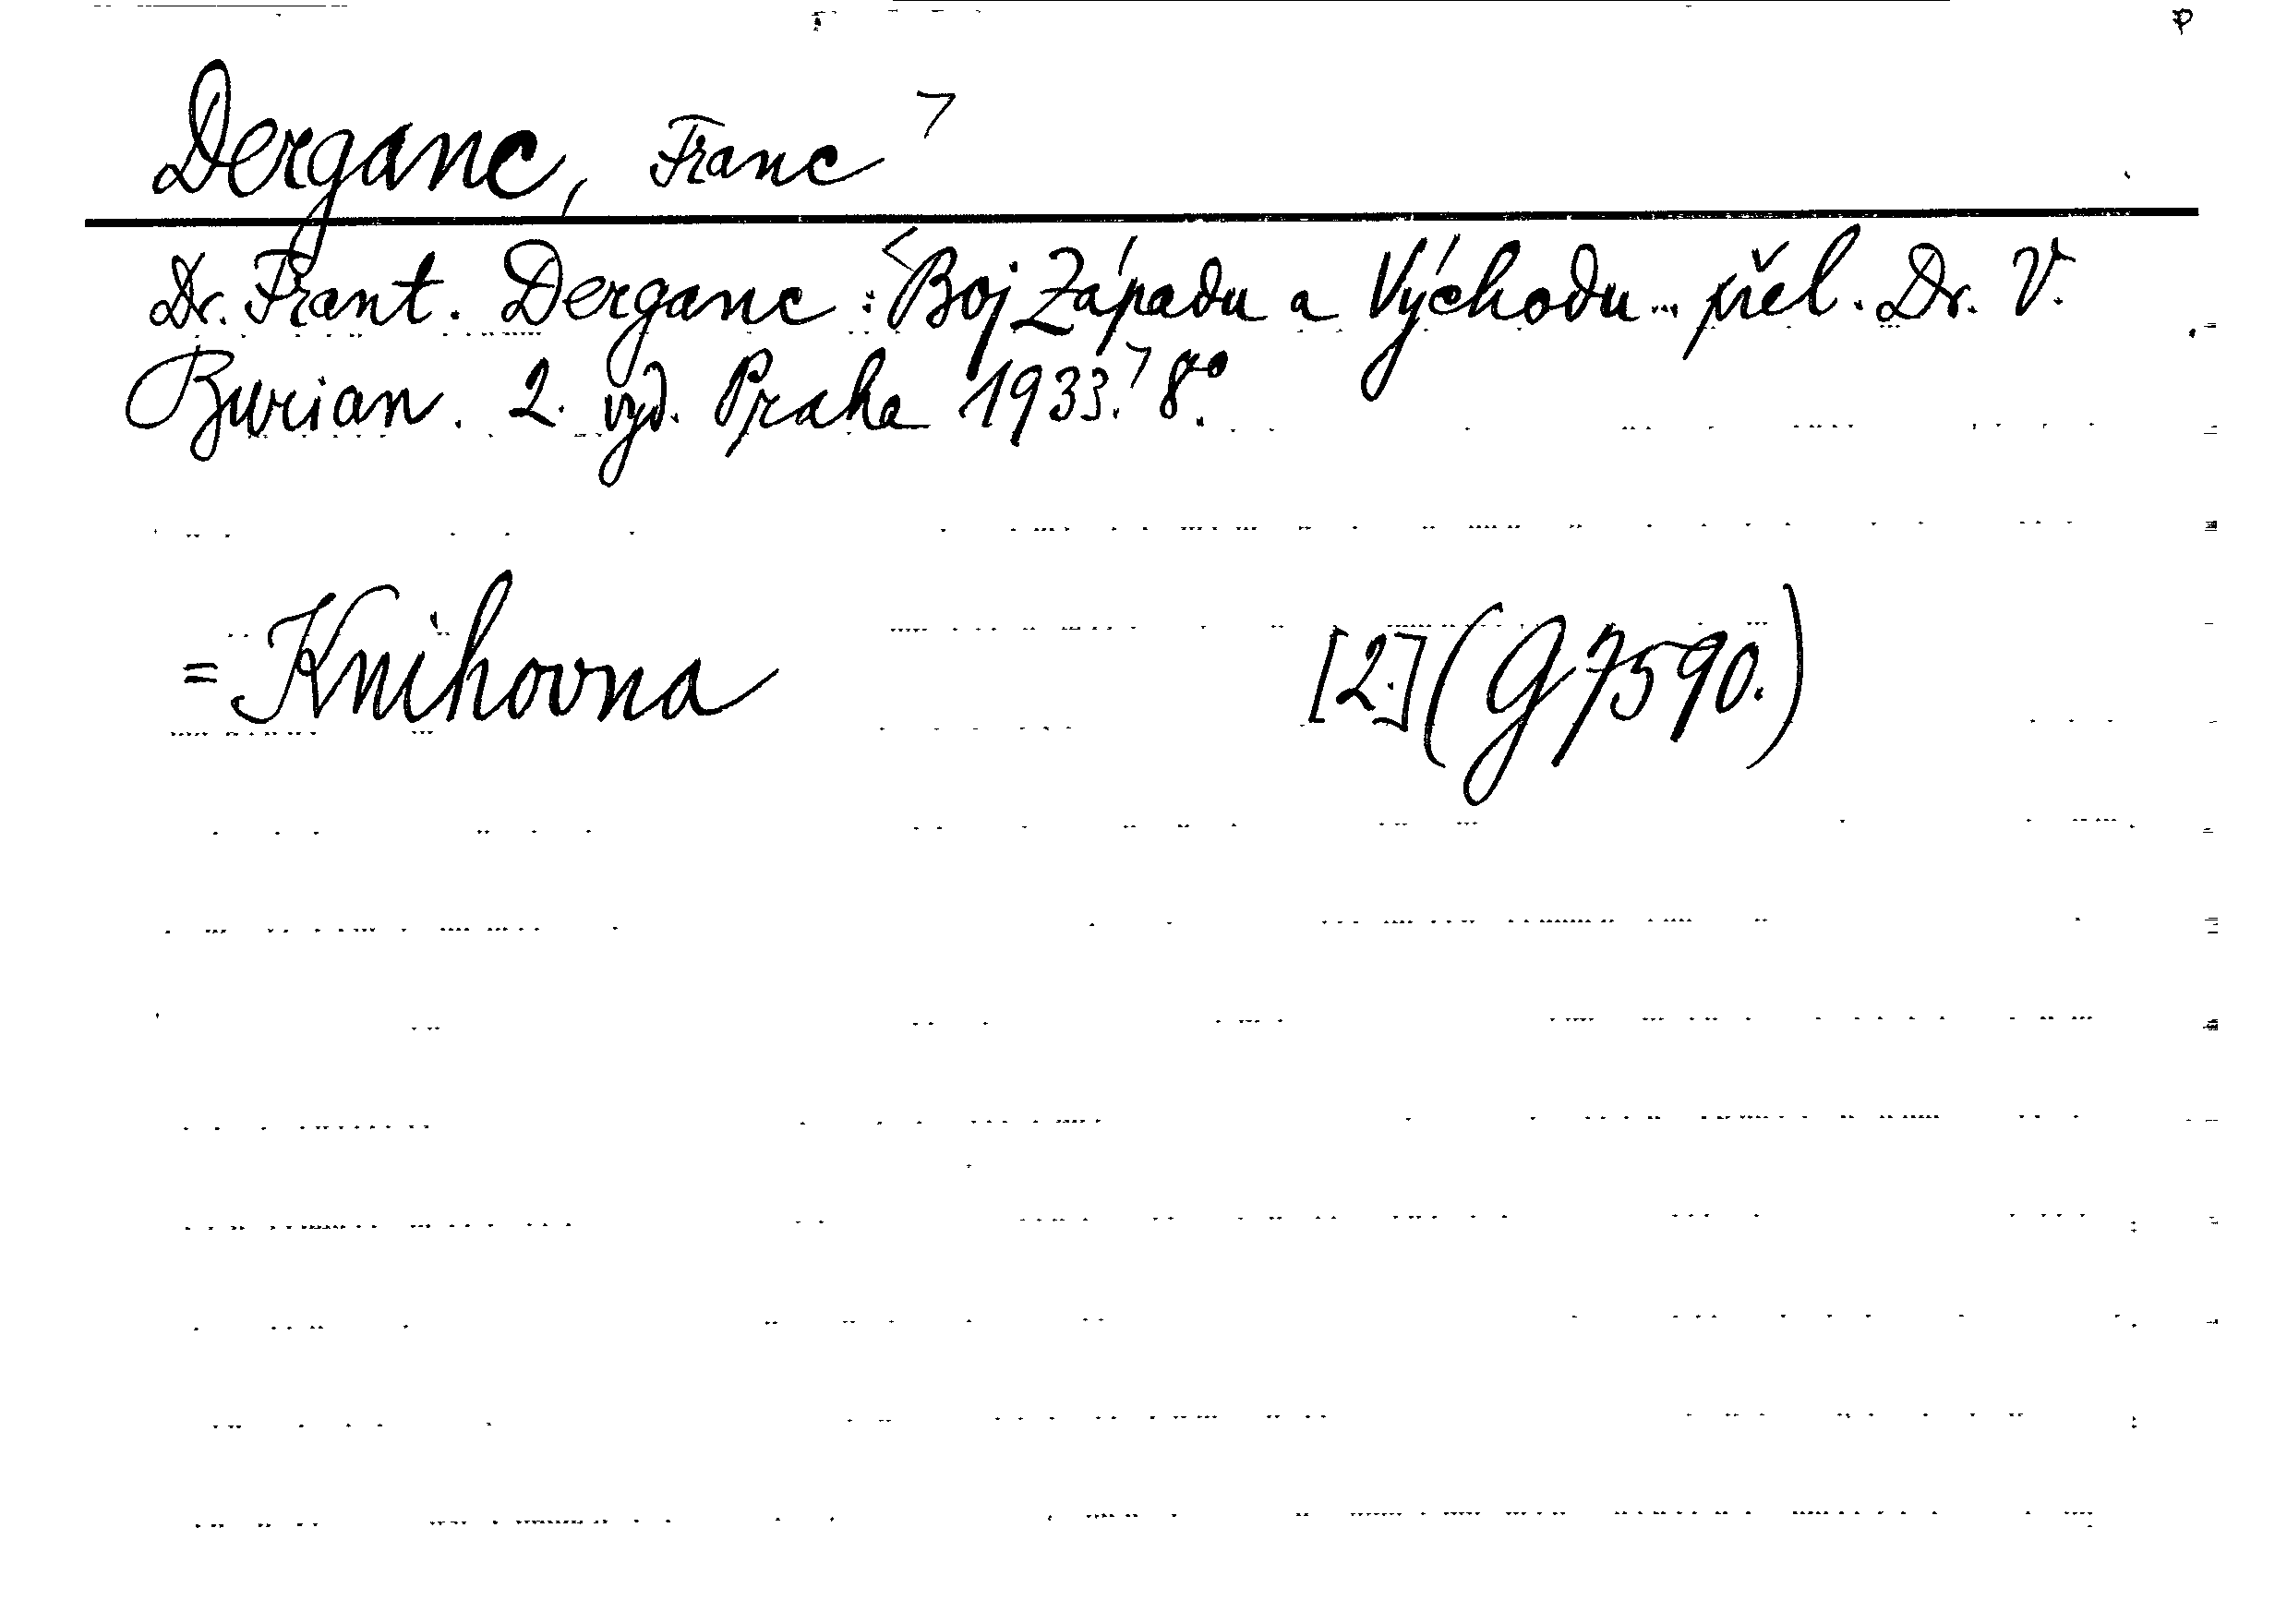 Derganc, Franc ⁊
Dr. Frant. Derganc: <Boj Západu a Východu... přel. Dr. V.
Burian. 2. vyd. Praha 1933.⁊ 8°.
= Knihovna [2.] (G 7590.)